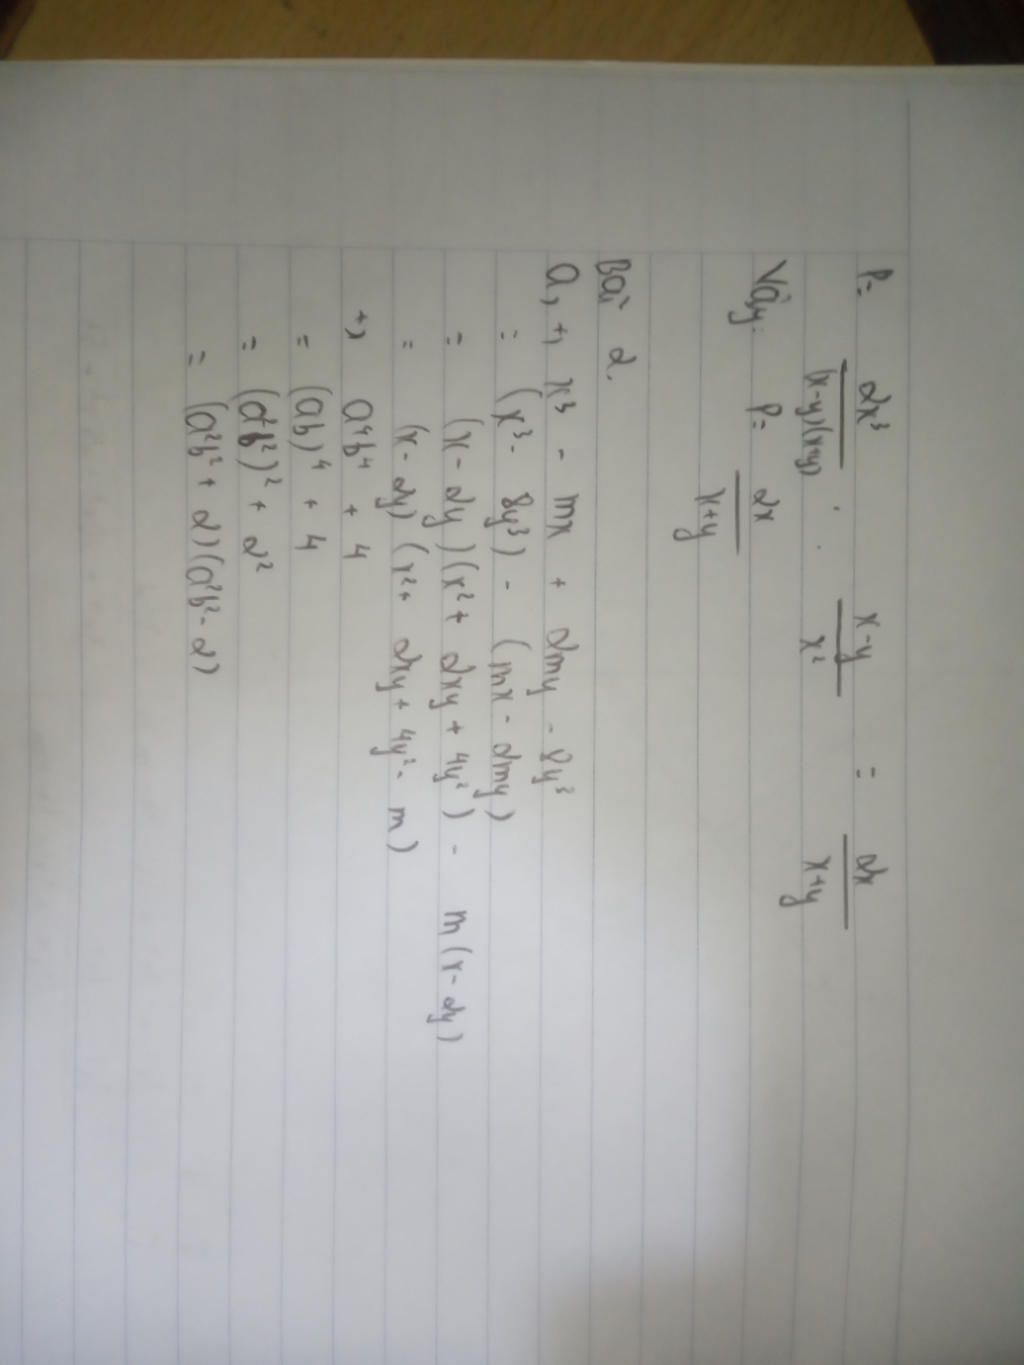 P= 2x³/(x-y)(x+y) . x-y/x² = 2x/x+y
Vậy: P= 2x/x+y
Bài 2.
a, +, x³ - mx + 2my - 8y³
= (x³ - 8y³) - (mx - 2my)
= (x - 2y)(x² + 2xy + 4y²) - m(x - 2y)
= (x - 2y)(x² + 2xy + 4y² - m)
+, a⁴b⁴ + 4
= (ab)⁴ + 4
= (a²b²)² + 2²
= (a²b² + 2)(a²b² - 2)